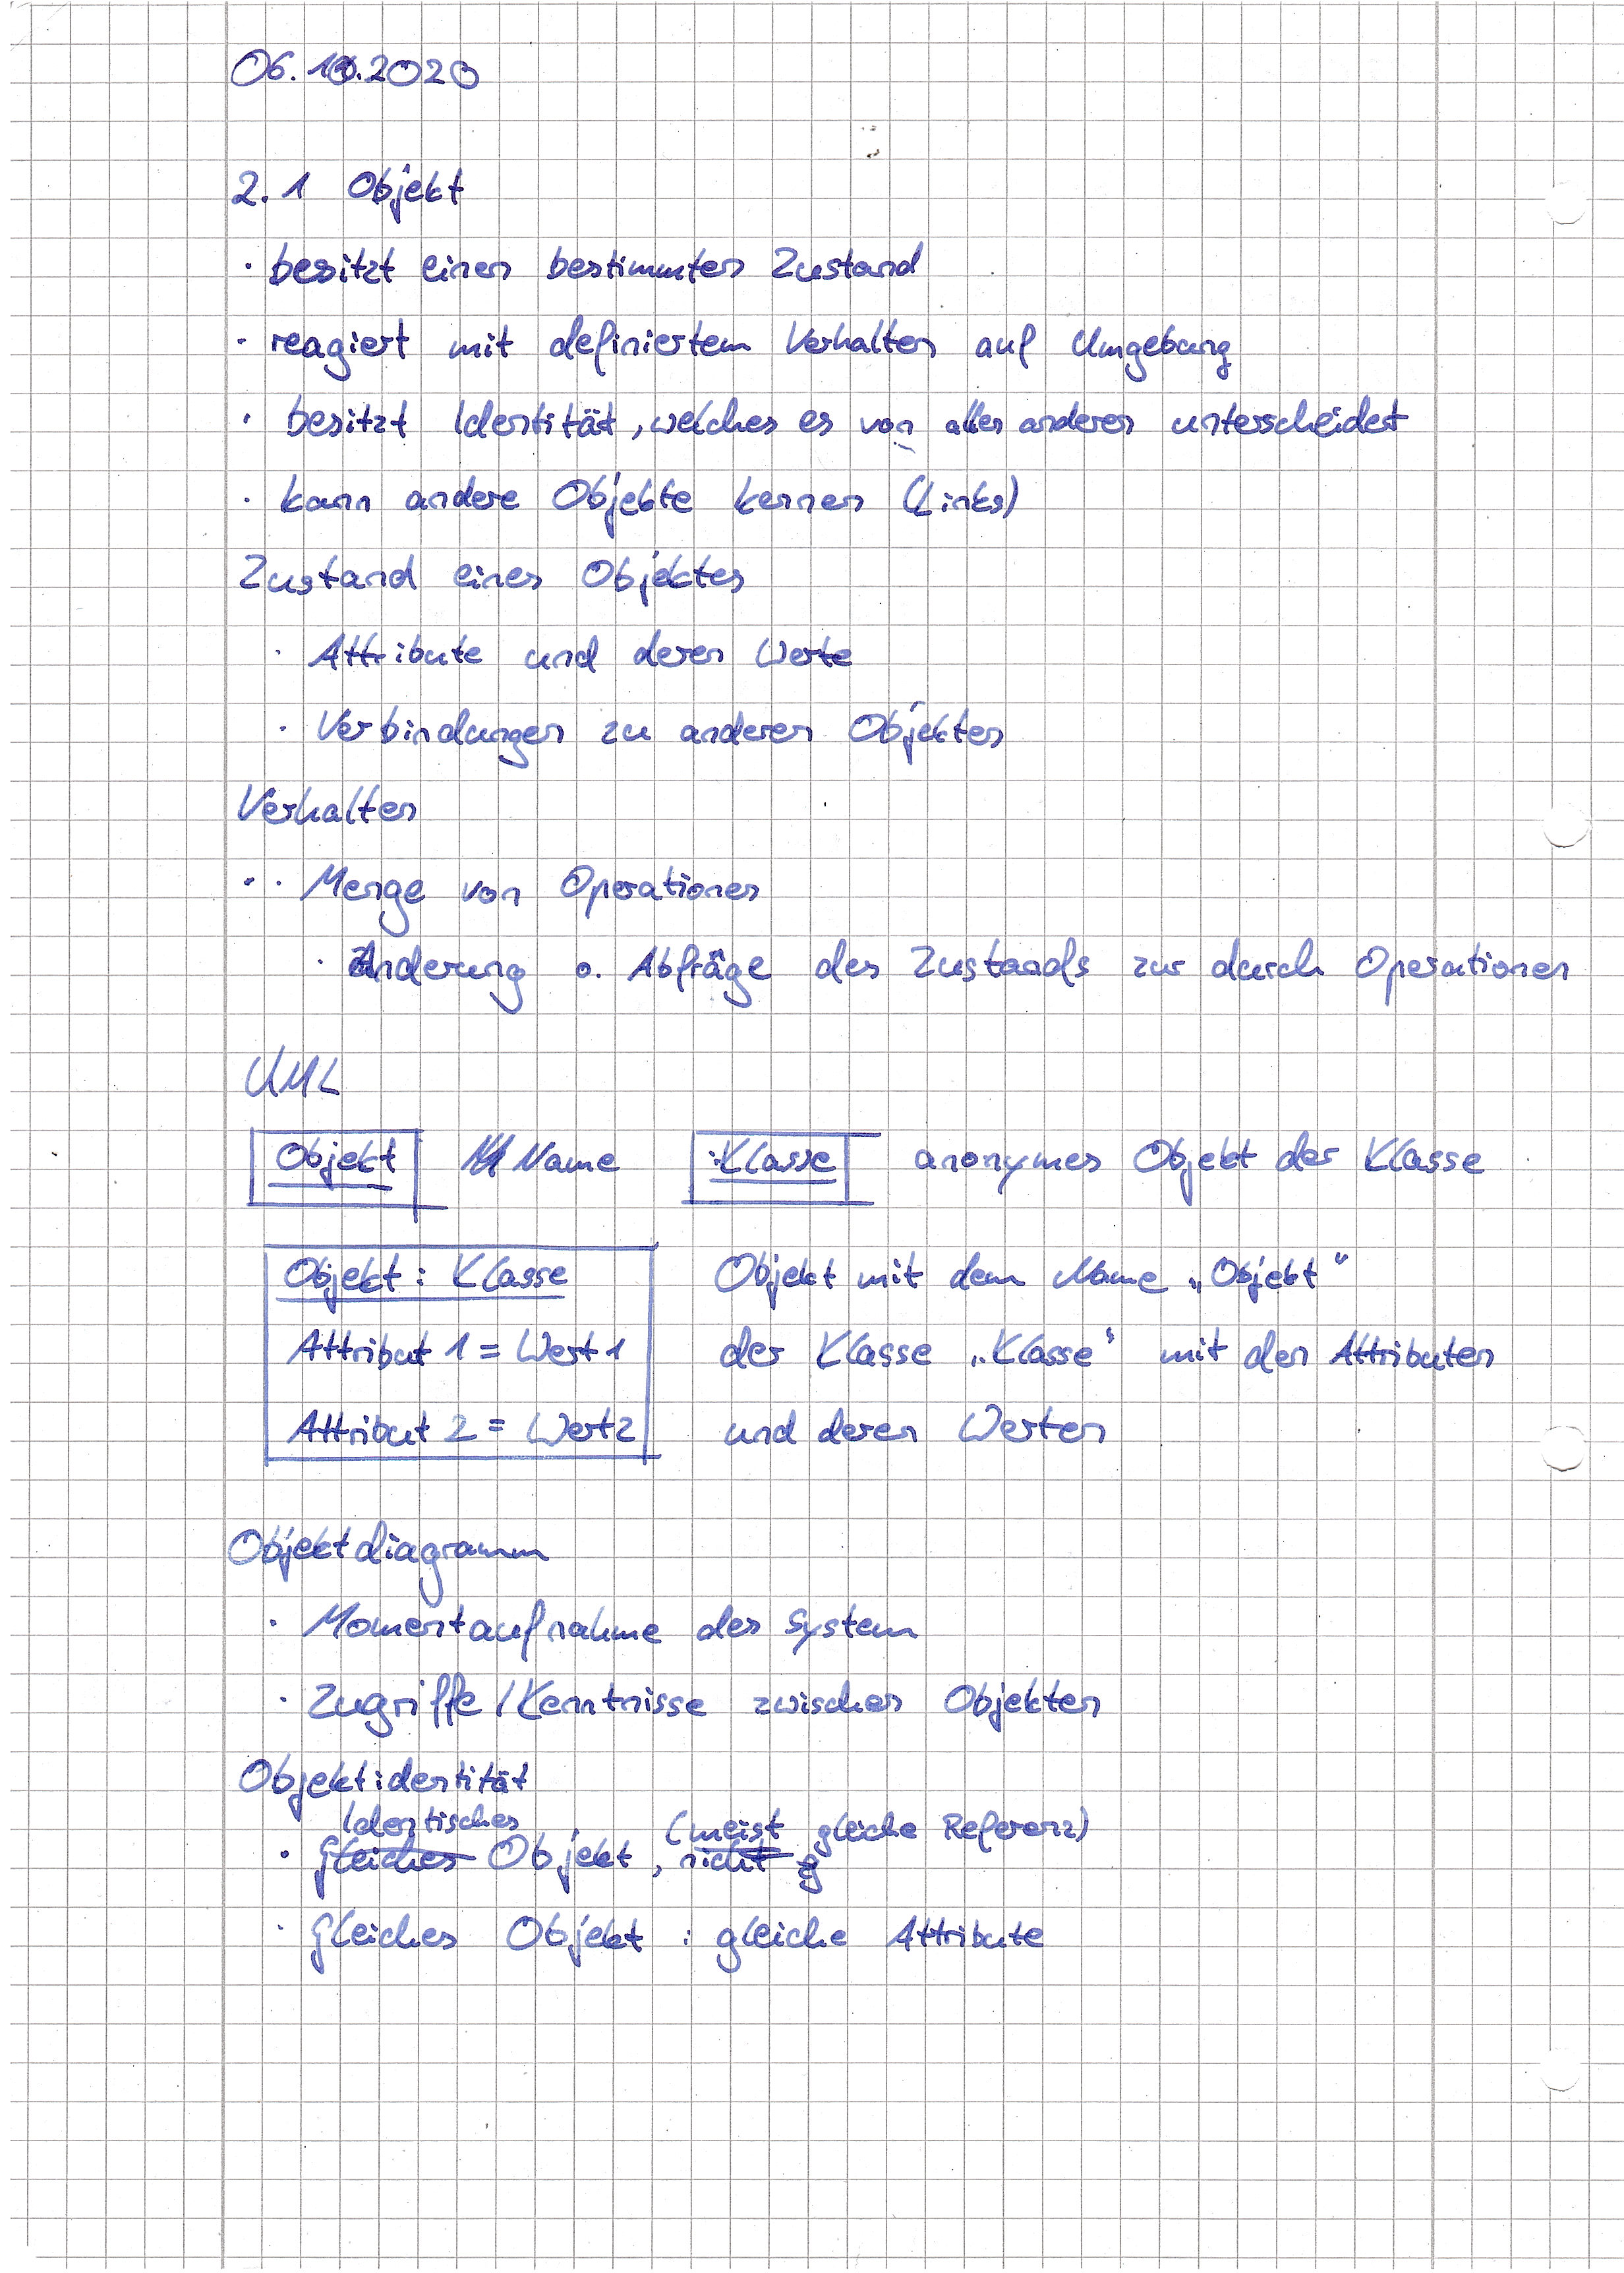 06.10.2020
2.1 Objekt
· besitzt einen bestimmten Zustand
· reagiert mit definiertem Verhalten auf Umgebung
· besitzt Identität, welches es von allen anderen unterscheidet
· kann andere Objekte kennen (Links)
Zustand eines Objektes
· Attribute und deren Werte
· Verbindungen zu anderen Objekten
Verhalten
· · Menge von Operationen
· Änderung o. Abfräge des Zustands zur durch Operationen
UML
Objekt Name :Klasse anonymes Objekt der Klasse
Objekt : Klasse Objekt mit dem Name „Objekt“
Attribut 1 = Wert 1 der Klasse „Klasse“ mit den Attributen
Attribut 2 = Wert 2 und deren Werten
Objektdiagramm
· Momentaufnahme des System
· Zugriffe / Kenntnisse zwischen Objekten
Objektidentität
Identisches (meist gleiche Referenz)
· Gleiches Objekt, nicht g
· Gleiches Objekt : gleiche Attribute